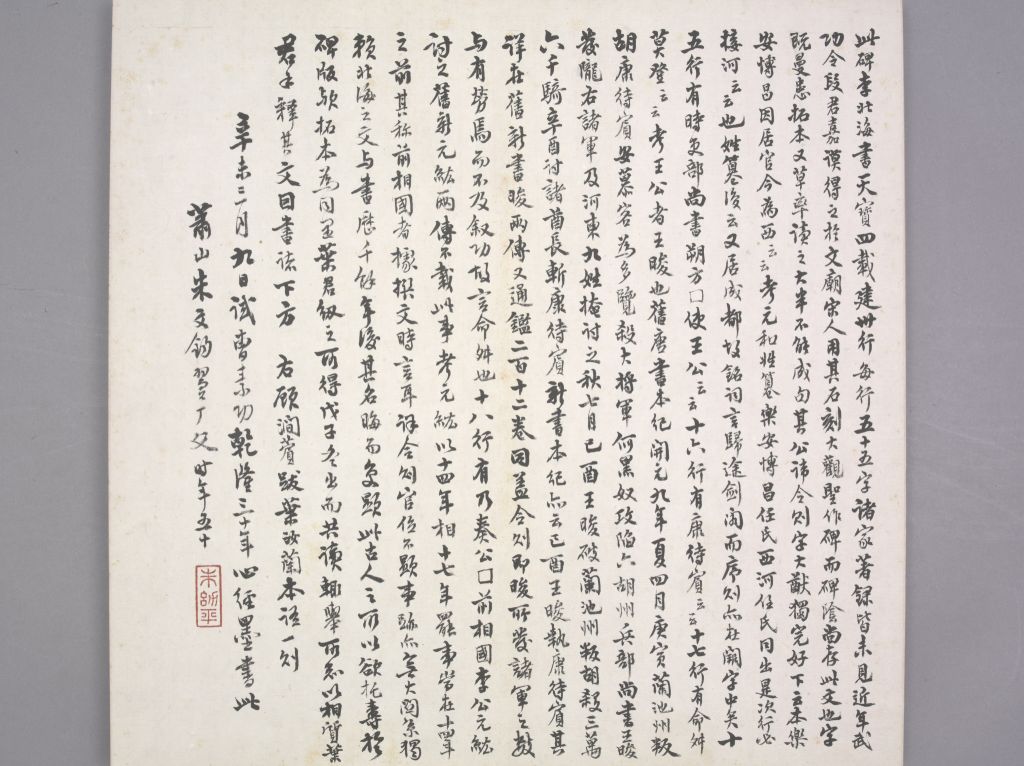 此碑李北海書天寶四載建卅行每行五十五字諸家著録皆未見近年武
功令段君嘉謨得之於文廟宋人用其石刻大觀聖作碑而碑陰尚存此文也字
既曼患拓本又草率讀之大半不能成句其公諱令則字大猷獨完好下云本樂
安博昌因居官今為西云云考元和姓篹樂安博昌任氏西河任氏同出是次行必
接河云云也姓篹後云又居成都故銘詞言歸途劍閣而序則亦在闕字中矣十
五行有時吏部尚書朔方囗使王公云云十六行有康待賓云云十七行有命舛
莫登云云考王公者王晙也舊唐書本紀開元九年夏四月庚寅蘭池州叛
胡康待賓安慕容為多覽殺大將軍何黑奴攻陷六胡州兵部尚書王晙
發隴右諸軍及河東九姓掩討之秋七月己酉王晙破蘭池州叛胡殺三萬
六千騎辛酉討諸酋長斬康待賓新書本紀亦云己酉王晙執康待賓其
詳在舊新書晙兩傳又通鑑二百十二卷同蓋令則即晙所發諸軍之數
与有勞焉而不及敘功故言命舛也十八行有乃奏公囗前相國李公元紘
討之舊新元紘兩傳不載此事考元紘以十四年相十七年罷事皆在十四年
之前其称前相國者據撰文時言耳詳令則官位不顯事跡亦無大關系獨
賴北海之文与書歷千餘年後其名晦而更顯此古人之所以欲托壽於
碑版歟拓本為同里葉君紉之所得戊子冬出而共讀輒舉所知以相質葉
君手釋其文因書諸下方 右顧澗薲跋葉汝蘭本語一則
辛未二月九日試曹素功乾隆三十年心經墨書此
蕭山朱文鈞翼厂父時年五十
朱幼平